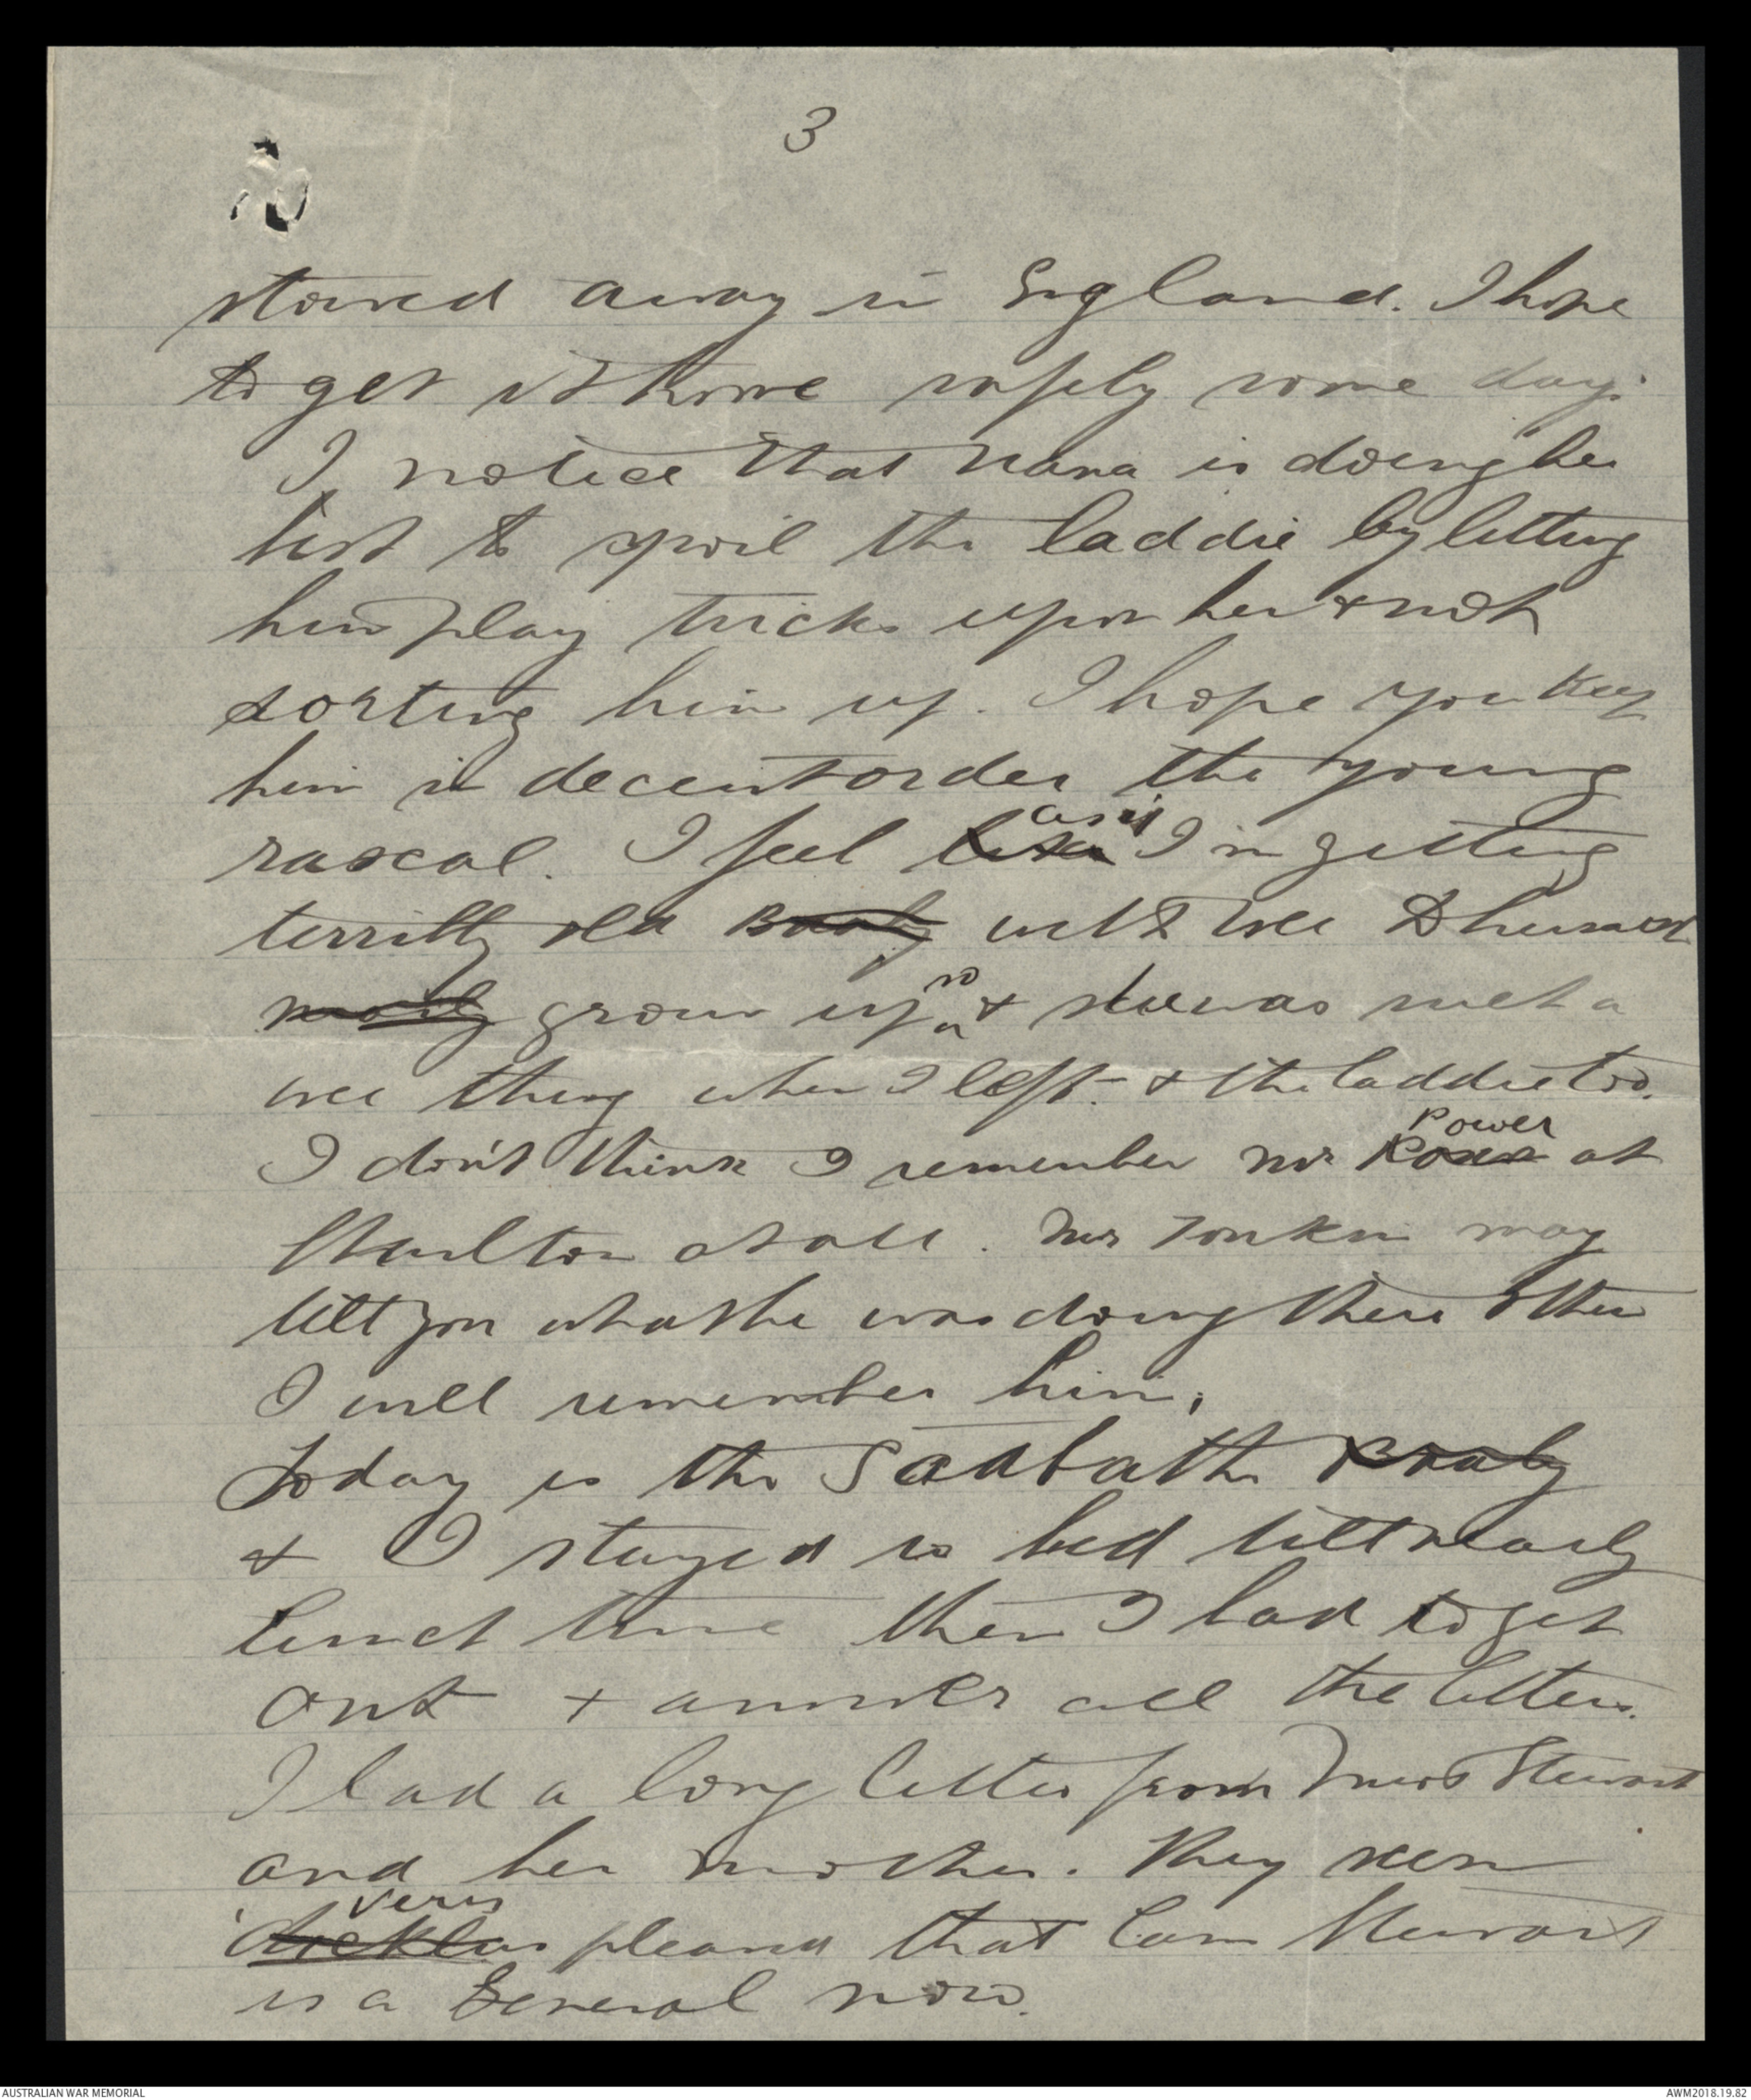 3
stowed away in England. I hope
to get it home safely some day.
I notice that Nana is doing her
best to spoil the laddie by letting
him play tricks upon her & not
sorting him up. I hope you keep
him in decent order the young
rascal. I feel like as if I'm getting
terribly old Booky with wee
nearly grown up so & she was such a
wee thing when I left. & the laddie too.
I don't think I remember Mr Power at
Charlton at all. Mr Tonkin may
tell you what he was doing there & then
I will remember him.
Today is the Sabbath Booky
& I stayed in bed till nearly
lunch time then I had to get
out & answer all the letters.
I had a long letter from Miss Stewart
and her mother. They seem
very pleased that Cam Stewart
is a General now.
AUSTRALIAN WAR MEMORIAL
AWM2018.19.82